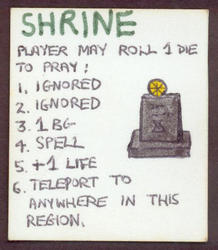 SHRINE
PLAYER MAY ROLL 1 DIE
TO PRAY:
1. IGNORED
2. IGNORED
3. 1 BG
4. SPELL
5. +1 LIFE
6. TELEPORT TO
ANYWHERE IN THIS
REGION.